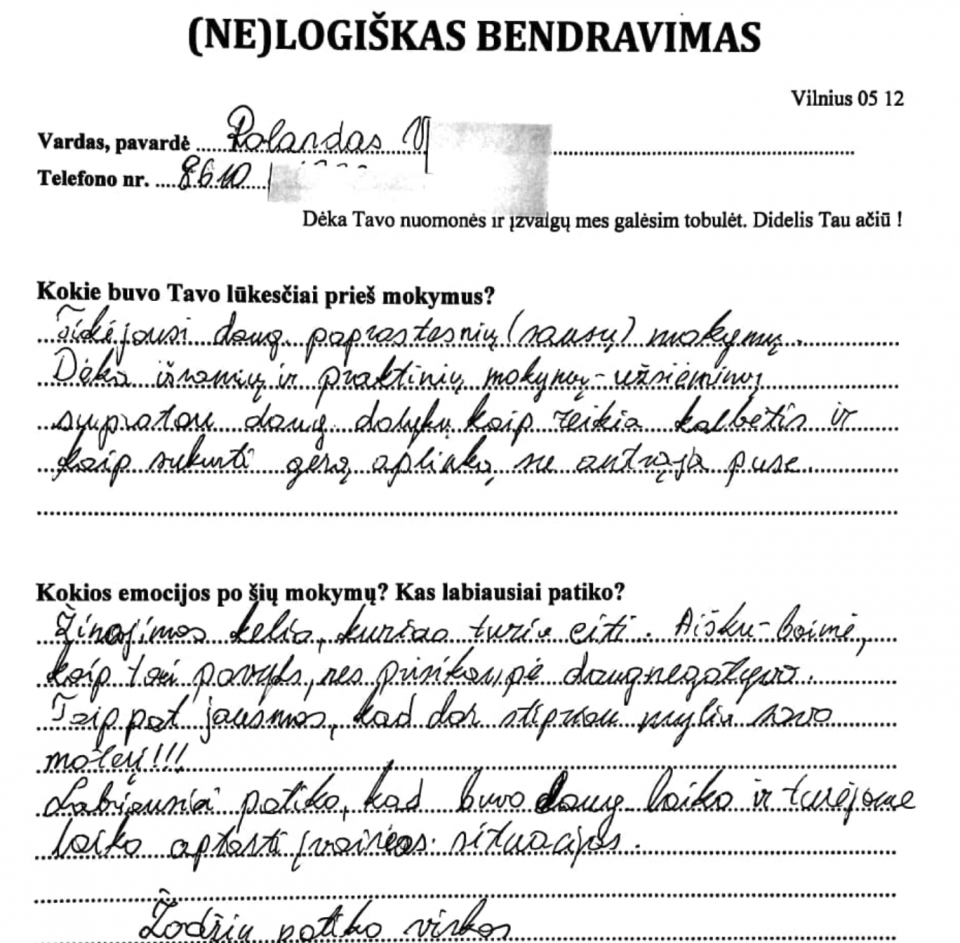 (NE)LOGIŠKAS BENDRAVIMAS
Vilnius 05 12
Vardas, pavardė Rolandas V
Telefono nr. 8610
Dėka Tavo nuomonės ir įžvalgų mes galėsim tobulėt. Didelis Tau ačiū !
Kokie buvo Tavo lūkesčiai prieš mokymus?
Tikėjausi daug paprastesnių (sausų) mokymų.
Dėka išsamių ir praktinių mokymų-užsiėmimų
supratau daug dalykų kaip reikia kalbėtis ir
kaip sukurti gerą aplinką su antrąja puse
Kokios emocijos po šių mokymų? Kas labiausiai patiko?
Žinojimas kelio, kuriuo turiu eiti. Aišku-baimė,
kaip tai pavyks, nes prisikaupė daug negatyvo.
Taip pat jausmas, kad dar stipriau myliu savo
moterį!!!
Labiausiai patiko, kad buvo daug laiko ir turėjome
laiko aptarti įvairias situacijas.
Žodžiu patiko viskas